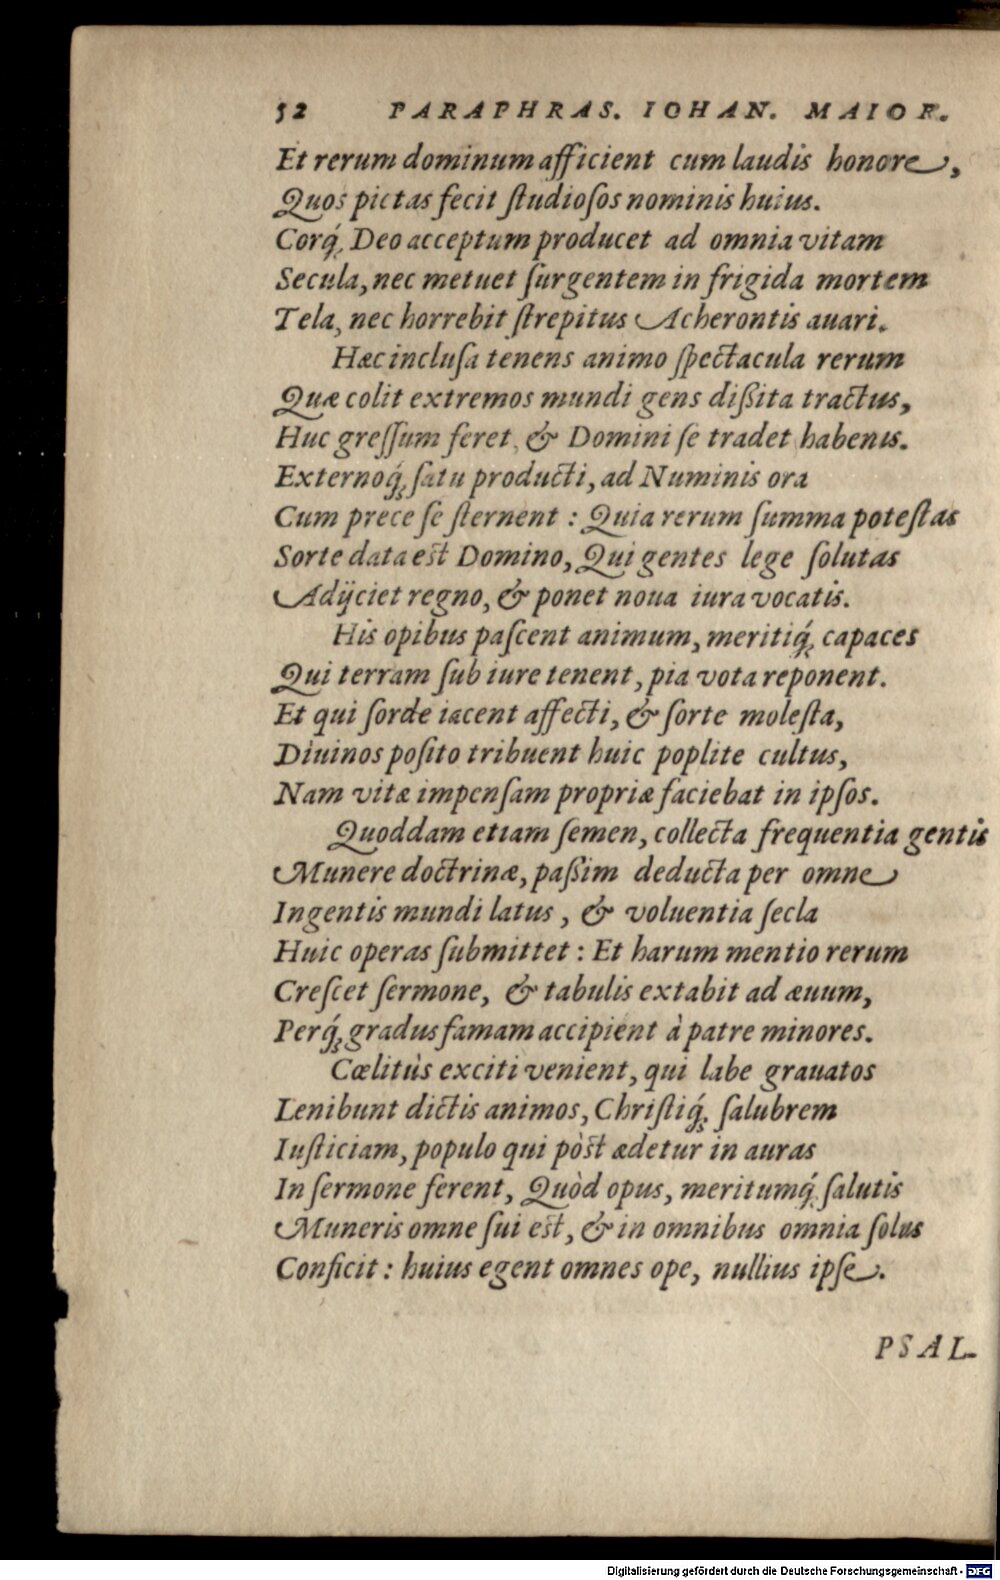 52 PARAPHRAS. IOHAN. MAIOR.
Et rerum dominum afficient cum laudis honore,
Quos pietas fecit ſtudioſos nominis huius.
Corq́; Deo acceptum producet ad omnia vitam
Secula, nec metuet ſurgentem in frigida mortem
Tela, nec horrebit ſtrepitus Acherontis auari.
Hæc incluſa tenens animo ſpectacula rerum
Quæ colit extremos mundi gens dißita tractus,
Huc greſſum feret, & Domini ſe tradet habenis.
Externoq́; ſatu producti, ad Numinis ora
Cum prece ſe ſternent : Quia rerum ſumma poteſtas
Sorte data est Domino, Qui gentes lege ſolutas
Adijciet regno, & ponet noua iura vocatis.
His opibus paſcent animum, meritiq́; capaces
Qui terram ſub iure tenent, pia vota reponent.
Et qui ſorde iacent affecti, & ſorte moleſta,
Diuinos poſito tribuent huic poplite cultus,
Nam vitæ impenſam propriæ faciebat in ipſos.
Quoddam etiam ſemen, collecta frequentia gentis
Munere doctrinæ, paßim deducta per omne
Ingentis mundi latus, & voluentia ſecla
Huic operas ſubmittet : Et harum mentio rerum
Creſcet ſermone, & tabulis extabit ad æuum,
Perq́; gradus famam accipient à patre minores.
Cœlitùs exciti venient, qui labe grauatos
Lenibunt dictis animos, Chriſtiq́; ſalubrem
Iuſticiam, populo qui pòst ædetur in auras
In ſermone ferent, Quòd opus, meritumq́; ſalutis
Muneris omne ſui est, & in omnibus omnia ſolus
Conficit : huius egent omnes ope, nullius ipſe.
PSAL-
Digitalisierung gefördert durch die Deutsche Forschungsgemeinschaft - DFG